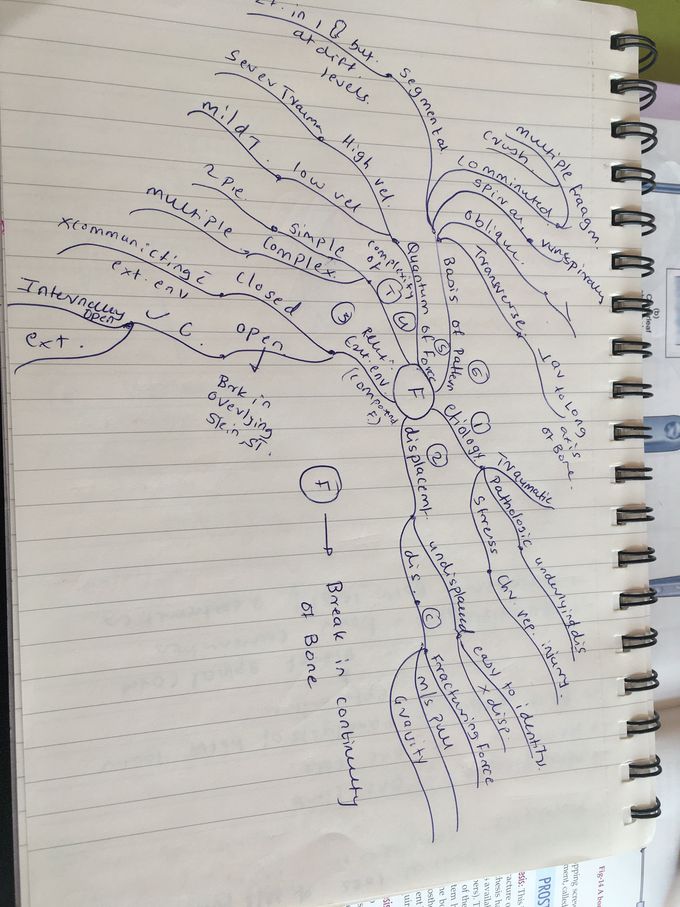 F
① etiology
Traumatic
Pathologic
underlying dis
Stress
Chr. rep. injury.
② displacemt.
undisplaced
easy to identify.
x disp.
dis.
C
Fracturing Force
m/s pull
Gravity
③
Ext. env.
closed
xcommunicting c̄
ext. env
open
Brk in
overlying
Skin, ST.
C.
Internally
open
ext.
④ Quantum of Force
High vel.
Sever Trauma
low vel
mild T.
complexity
of
simple
2 pie.
complex
multiple
⑤ Basis of Pattern
⑥
Transverse
⊥ar to Long
axis
of Bone.
oblique.
spiral.
runspirally
comminuted
multiple fragm.
crush.
segmental
at diff.
levels.
but
F → Break in continuity
of Bone
PROS